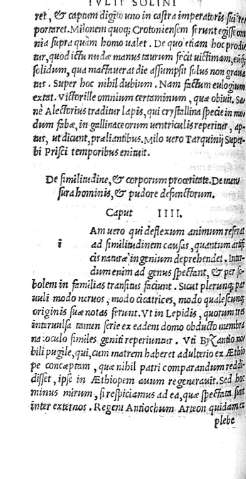 IVLII SOLINI
ret, & captum digito uno in castra imperatoris
portaret. Milonem quoq; Crotoniensem ferunt egisse om
nia supra quàm homo ualet. De quo etiam hoc
tur, quod ictu nudæ manus taurum fecit uictimam,
solidum, qua mactauerat die assumpsit solus non graua
tus. Super hoc nihil dubium. Nam factum eulogium
extat. Victor ille omnium certaminum, quæ obiuit.
nè Alectorius traditur lapis, qui crystallina specie in mo
dum fabæ, in gallinaceorum uentriculis reperitur, ap-
tus, ut dicunt, præliantibus. Milo uero Tarquinij Super-
bi Prisci temporibus enituit.
De similitudine, & corporum proceritate. De men
sura hominis, & pudore defunctorum.
Caput IIII.
i Am uero qui deflexum animum referat
ad similitudinem causas, quantum artifi
cis naturæ ingenium deprehendet. Inter-
dum enim ad genus spectant, & per
bolem in familias transitus faciunt. Sicut plerunq;
uuli modo neuos, modo cicatrices, modo qualescunq;
originis suæ notas ferunt. Vt in Lepidis, quorum tres
intermissa tamen serie ex eadem domo obducto membra
na oculo similes geniti reperiuntur. Vti Byzantio
bili pugile, qui, cum matrem haberet adulterio ex Æthio
pe conceptam, quæ nihil patri comparandum reddi
disset, ipse in Æthiopem auum regenerauit. Sed hoc
minus mirum, si respiciamus ad ea, quæ spectata sunt
inter externos. Regem Antiochum Arteon quidam
plebe